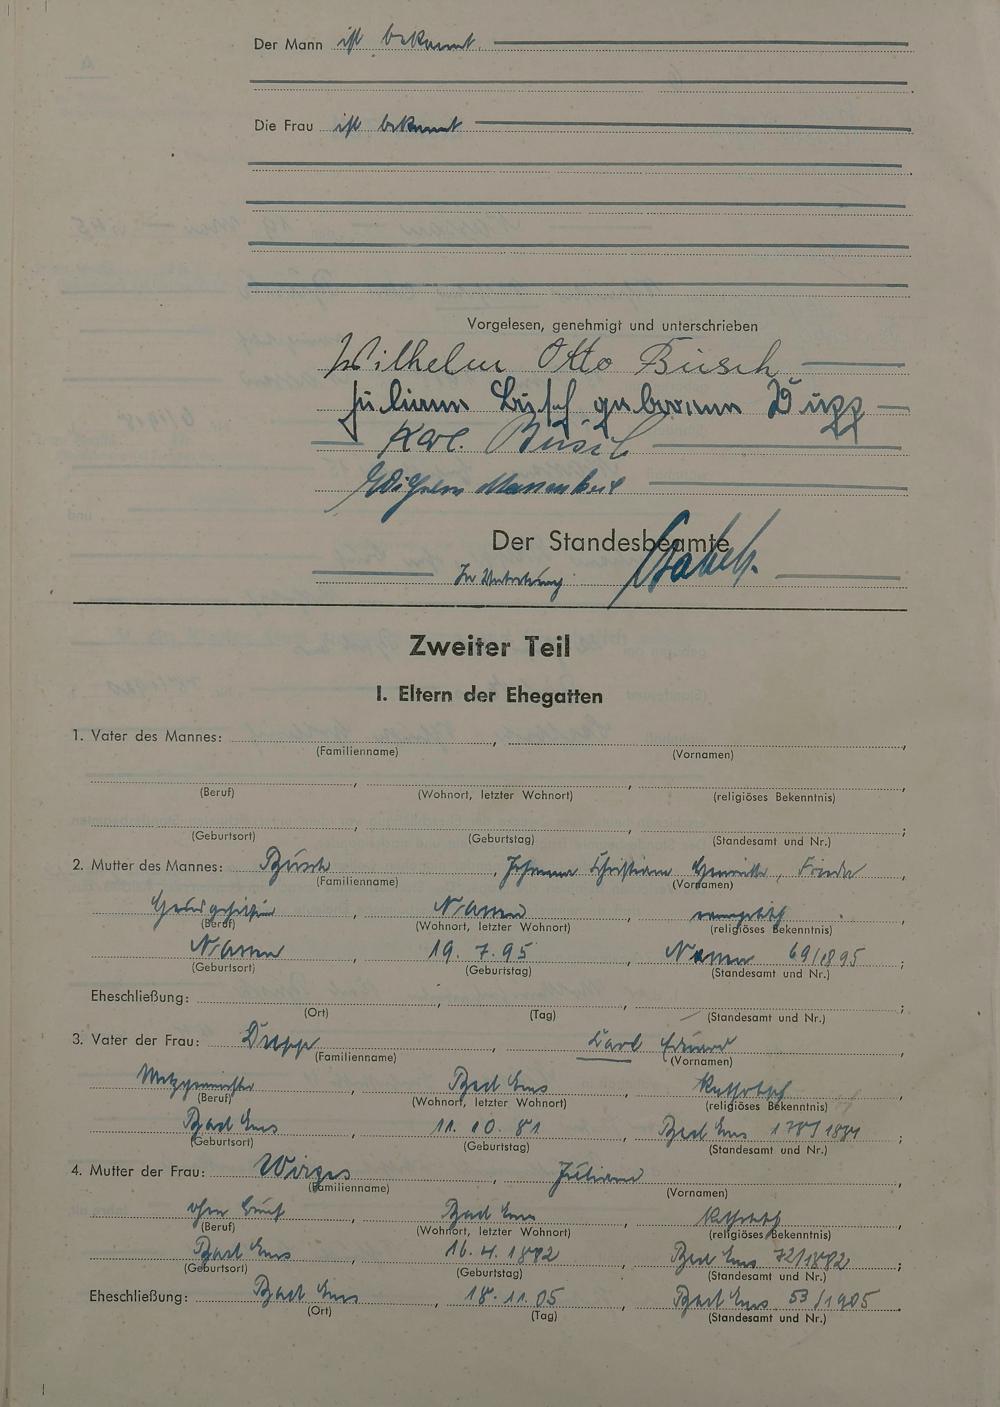 Der Mann ist bekannt.
Die Frau ist bekannt
Vorgelesen, genehmigt und unterschrieben
Wilhelm Otto Büsch
Juliana Büsch geborene Dupp
Karl Büsch
Wilhelm
Der Standesbeamte
In Vertretung:
Zweiter Teil
I. Eltern der Ehegatten
1. Vater des Mannes: , ,
(Familienname) (Vornamen)
, , ,
(Beruf) (Wohnort, letzter Wohnort) (religiöses Bekenntnis)
, , ;
(Geburtsort) (Geburtstag) (Standesamt und Nr.)
2. Mutter des Mannes: Büsch , Johanna Christiane Henriette, Frieda
(Familienname) (Vornamen)
, Nassau , evangelisch ,
(Beruf) (Wohnort, letzter Wohnort) (religiöses Bekenntnis)
Nassau , 19.7.95 , Nassau 69/1895 ;
(Geburtsort) (Geburtstag) (Standesamt und Nr.)
Eheschließung: , , ;
(Ort) (Tag) (Standesamt und Nr.)
3. Vater der Frau: Dupp , Karl Eduard ,
(Familienname) (Vornamen)
Metzgermeister , Bad Ems , katholisch ,
(Beruf) (Wohnort, letzter Wohnort) (religiöses Bekenntnis)
Bad Ems , 11.10.81 , Bad Ems 178/1881 ;
(Geburtsort) (Geburtstag) (Standesamt und Nr.)
4. Mutter der Frau: Wirges , Juliana
(Familienname) (Vornamen)
ohne Beruf , Bad Ems , katholisch ,
(Beruf) (Wohnort, letzter Wohnort) (religiöses Bekenntnis)
Bad Ems , 16.4.1882 , Bad Ems 72/1882 ;
(Geburtsort) (Geburtstag) (Standesamt und Nr.)
Eheschließung: Bad Ems , 18.11.05 , Bad Ems 53/1905 .
(Ort) (Tag) (Standesamt und Nr.)